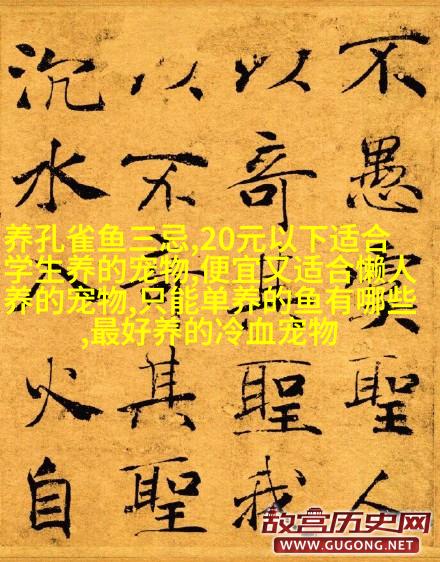 不愚聖人
以奇其聖我
以不奇其聖
沉水入火自
养孔雀鱼三忌,20元以下适合
学生养的宠物,便宜又适合懒人
养的宠物,只能单养的鱼有哪些
,最好养的冷血宠物
故宫历史网
WWW.GUGONG.NET